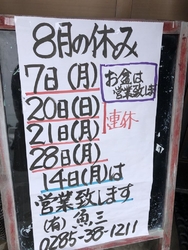 8月の休み
7日(月)
お盆は
営業致します
20日(日)
21日(月)
連休
28日(月)
14日(月)は
営業致します
(有)魚三
0285-38-1211